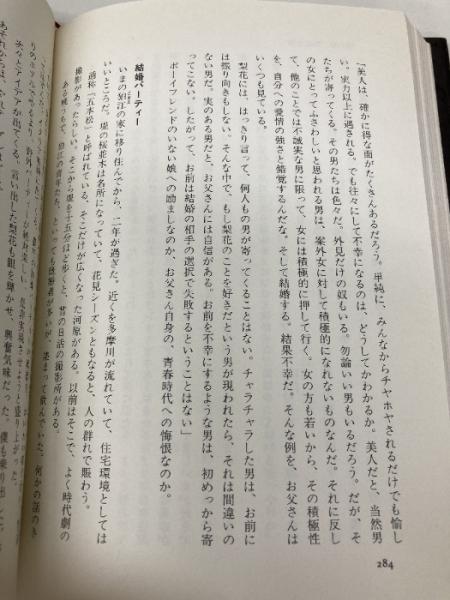 「美人は、確かに得な面がたくさんあるだろう。単純に、みんなからチヤホヤされるだけでも愉し
い。実力以上に遇される。でも往々にして不幸になるのは、どうしてかわかるか。美人だと、当然男
たちが寄ってくる。その男たちは色々だ。外見だけの奴もいる。勿論いい男もいるだろう。だが、そ
の女にとってふさわしいと思われる男は、案外女に対して積極的になれないものなんだ。それに反し
て、他のことでは不誠実な男に限って、女には積極的に押して行く。女の方も若いから、その積極性
を、自分への愛情の強さと錯覚するんだな。そして結婚する。結果不幸だ。そんな例を、お父さんは
いくつも見ている。
梨花には、はっきり言って、何人もの男が寄ってくることはない。チャラチャラした男は、お前に
は振り向きもしない。そんな中で、もし梨花のことを好きだという男が現われたら、それは間違いの
ない男だ。実のある男だと、お父さんには自信がある。お前を不幸にするような男は、初めっから寄
ってこない。したがって、お前は結婚の相手の選択で失敗するということはない」
ボーイフレンドのいない娘への励ましなのか、お父さん自身の、青春時代への悔恨なのか。
結婚パーティー
いまの狛江の家に移り住んでから、二年が過ぎた。近くを多摩川が流れていて、住宅環境としては
いいところだ。堤の桜並木は名所になっていて、花見シーズンともなると、人の群れで賑わう。
通称「五本松」と呼ばれている。そこだけが広くなった河原がある。以前はそこで、よく時代劇の
撮影があったらしい。そこから堤を十五分ほど歩くと、昔の日活の撮影所がある。
284